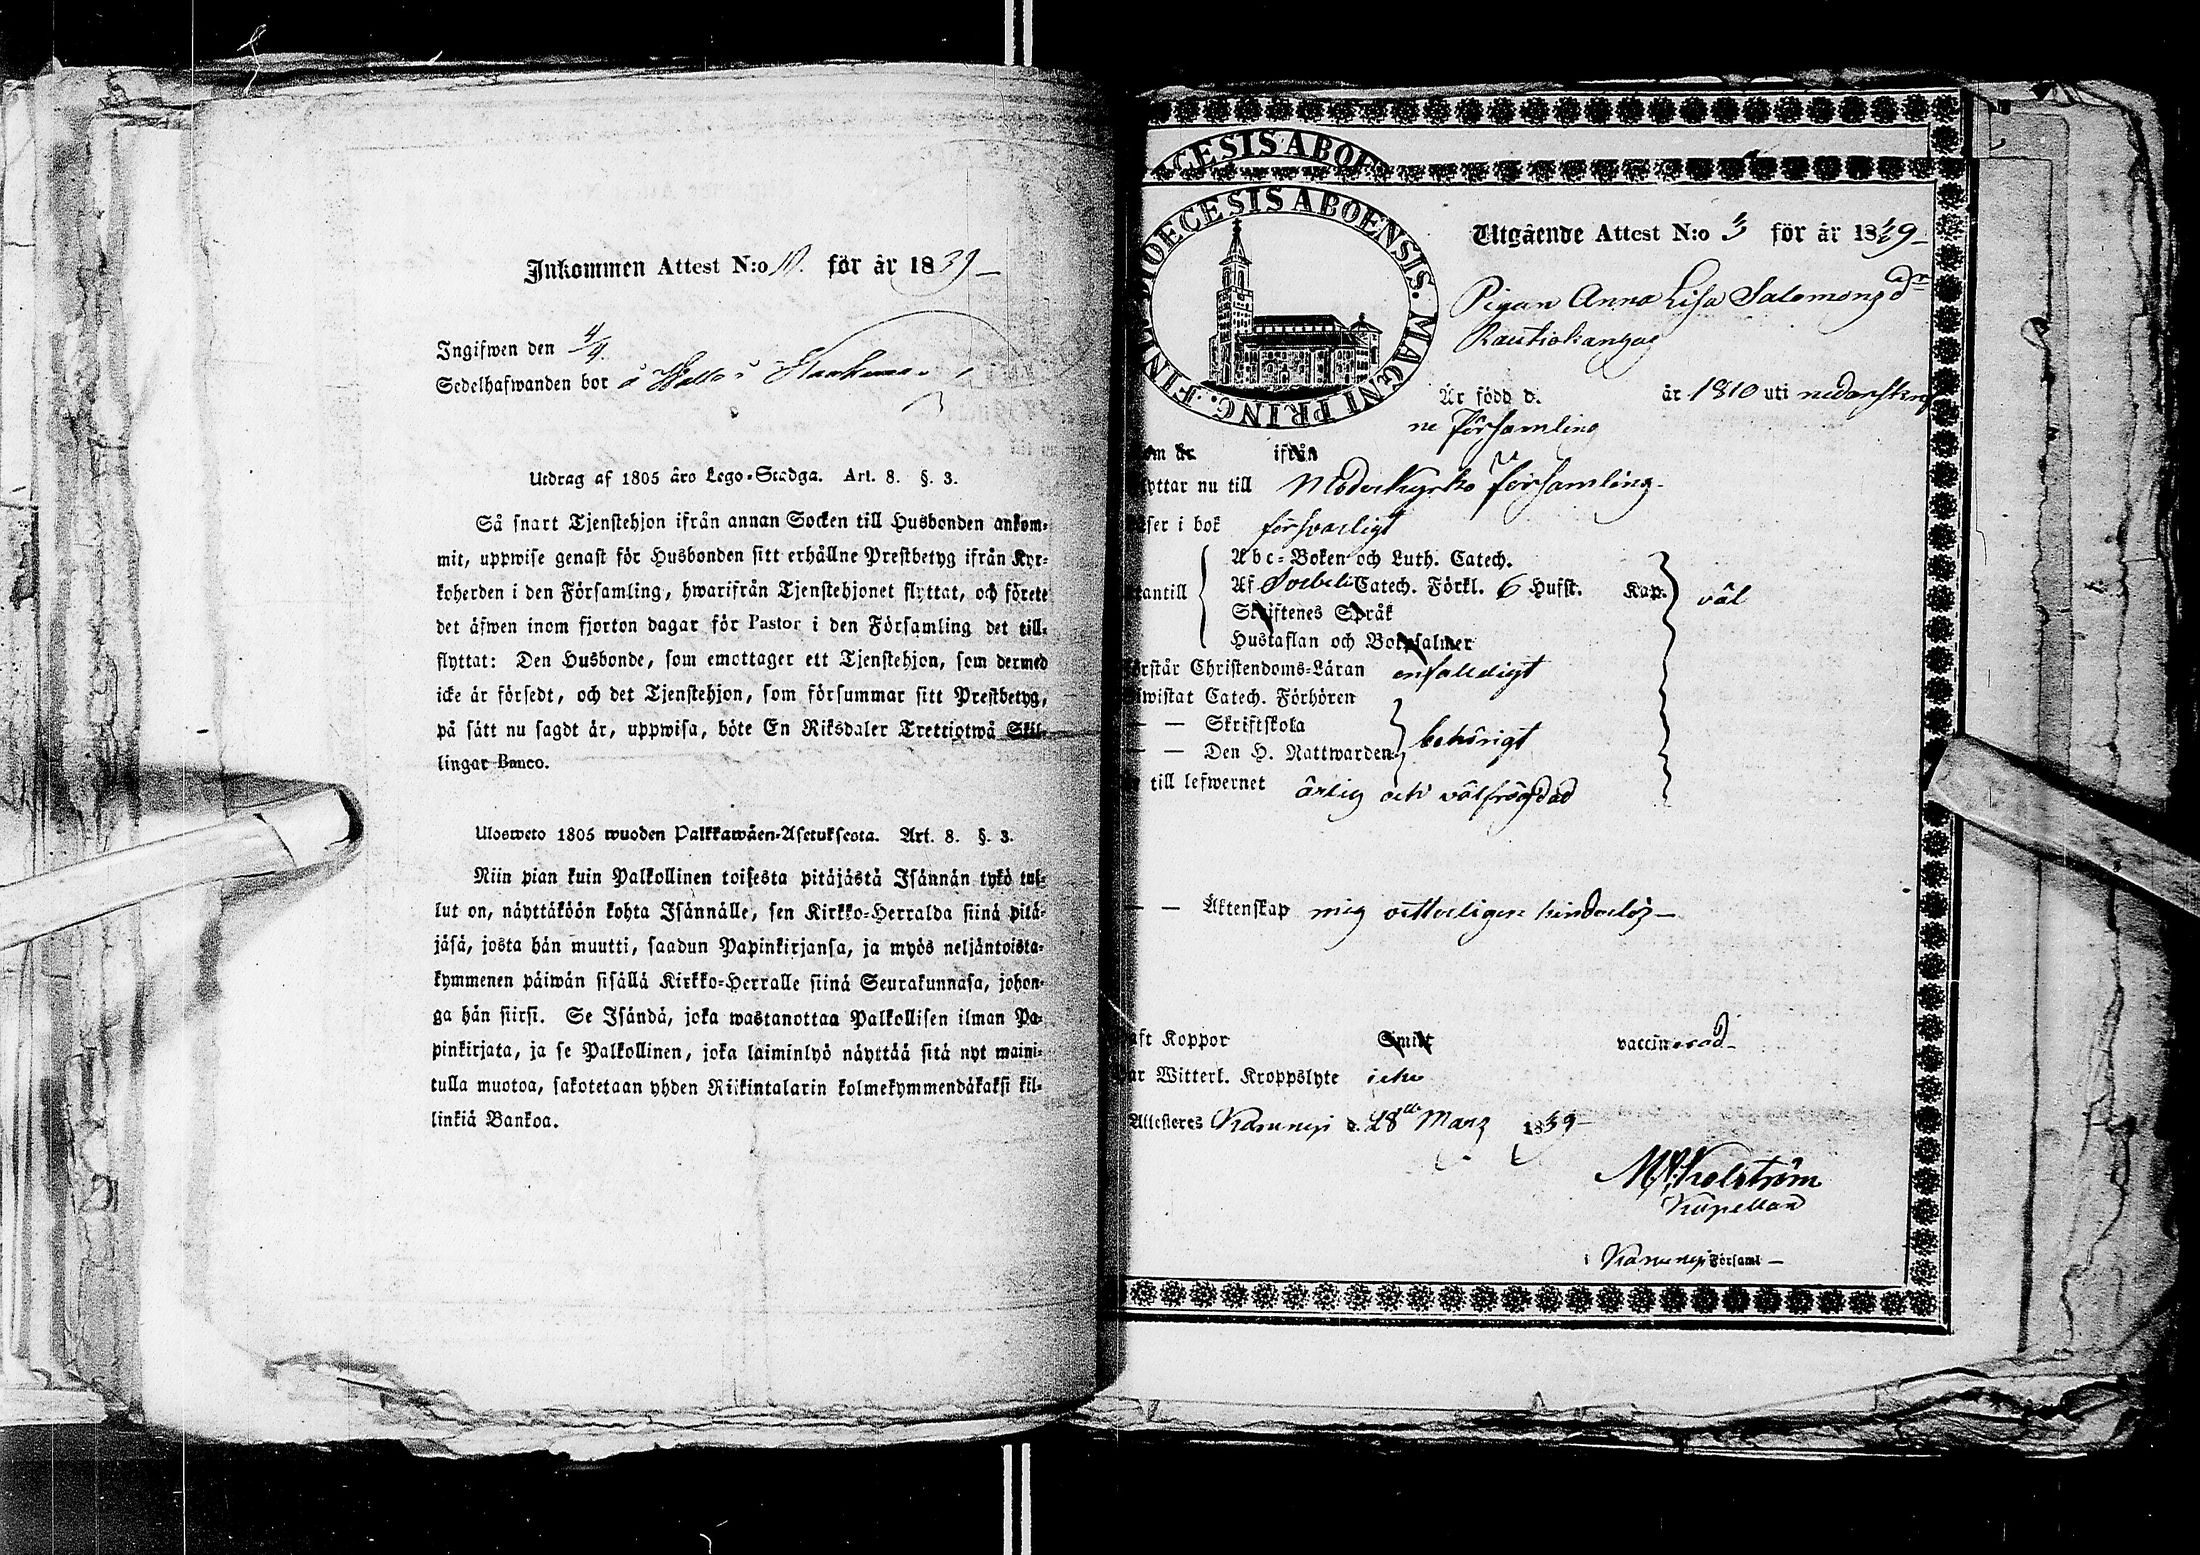 Inkommen Attest N:o 10. för år 1839
Ingifwen den 4/4
Sedelhafwanden bor å
Utdrag af 1805 års Lego-Stadga. Art. 8. §. 3.
Så snart Tjenstehjon ifrån annan Socken till Husbonden ankom-
mit, uppwise genast för Husbonden sitt erhållne Prestbetyg ifrån Kyr-
koherden i den Församling, hwarifrån Tjenstehjonet flyttat, och förete
det äfwen inom fjorton dagar för Pastor i den Församling det till-
flyttat: Den Husbonde, som emottager ett Tjenstehjon, som dermed
icke är försedt, och det Tjenstehjon, som försummar sitt Prestbetyg,
på sätt nu sagdt är, uppwisa, böte En Riksdaler Trettiotwå Skil-
lingar Banco.
Ulosweto 1805 wuoden Palkkawäen-Asetuksesta. Art. 8. §. 3.
Niin pian kuin Palkollinen toisesta pitäjästä Isännän tykö tul-
lut on, näyttäköön kohta Isännälle, sen Kirkko-Herralda siinä pitä-
jäsä, josta hän muutti, saadun Papinkirjansa, ja myös neljäntoista-
kymmenen päiwän sisällä Kirkko-Herralle siinä Seurakunnasa, johon-
ga hän siirsi. Se Isändä, joka wastanottaa Palkollisen ilman Pa-
pinkirjata, ja se Palkollinen, joka laiminlyö näyttää sitä nyt maini-
tulla muotoa, sakotetaan yhden Riikintalarin kolmekymmendäkaksi kil-
linkiä Bankoa.
CESIS ABOE
DIOECESIS ABOENSIS. MAGNI PRINC. FINL
Utgående Attest N:o 3 för år 1839
Pigan Anna Lisa Salomonsdr
Rautiokangas
Är född d. år 1810 uti nedanskref
ne församling
om år ifrån
yttar nu till Moderkyrko församling
äser i bok försvarligt
Abc-Boken och Luth. Catech.
tantill Af Svebeli Catech. Förkl. 6 Hufst. Kap. väl
Skriftenes Språk
Hustaflan och Botpsalmer
örstår Christendoms-Läran enfaldigt
wistat Catech. Förhören
— — Skriftskola
— — Den H. Nattwarden behörigt
till lefwernet ärlig och välfräjdad
— — Äktenskap mig vitterligen hinderlös
aft Koppor Smitt vaccinerad
ar Witterl. Kroppslyte icke
Attesteres Karungi d. 28de Mars 1839
Kolström
Kapellan
i Karungi Församl